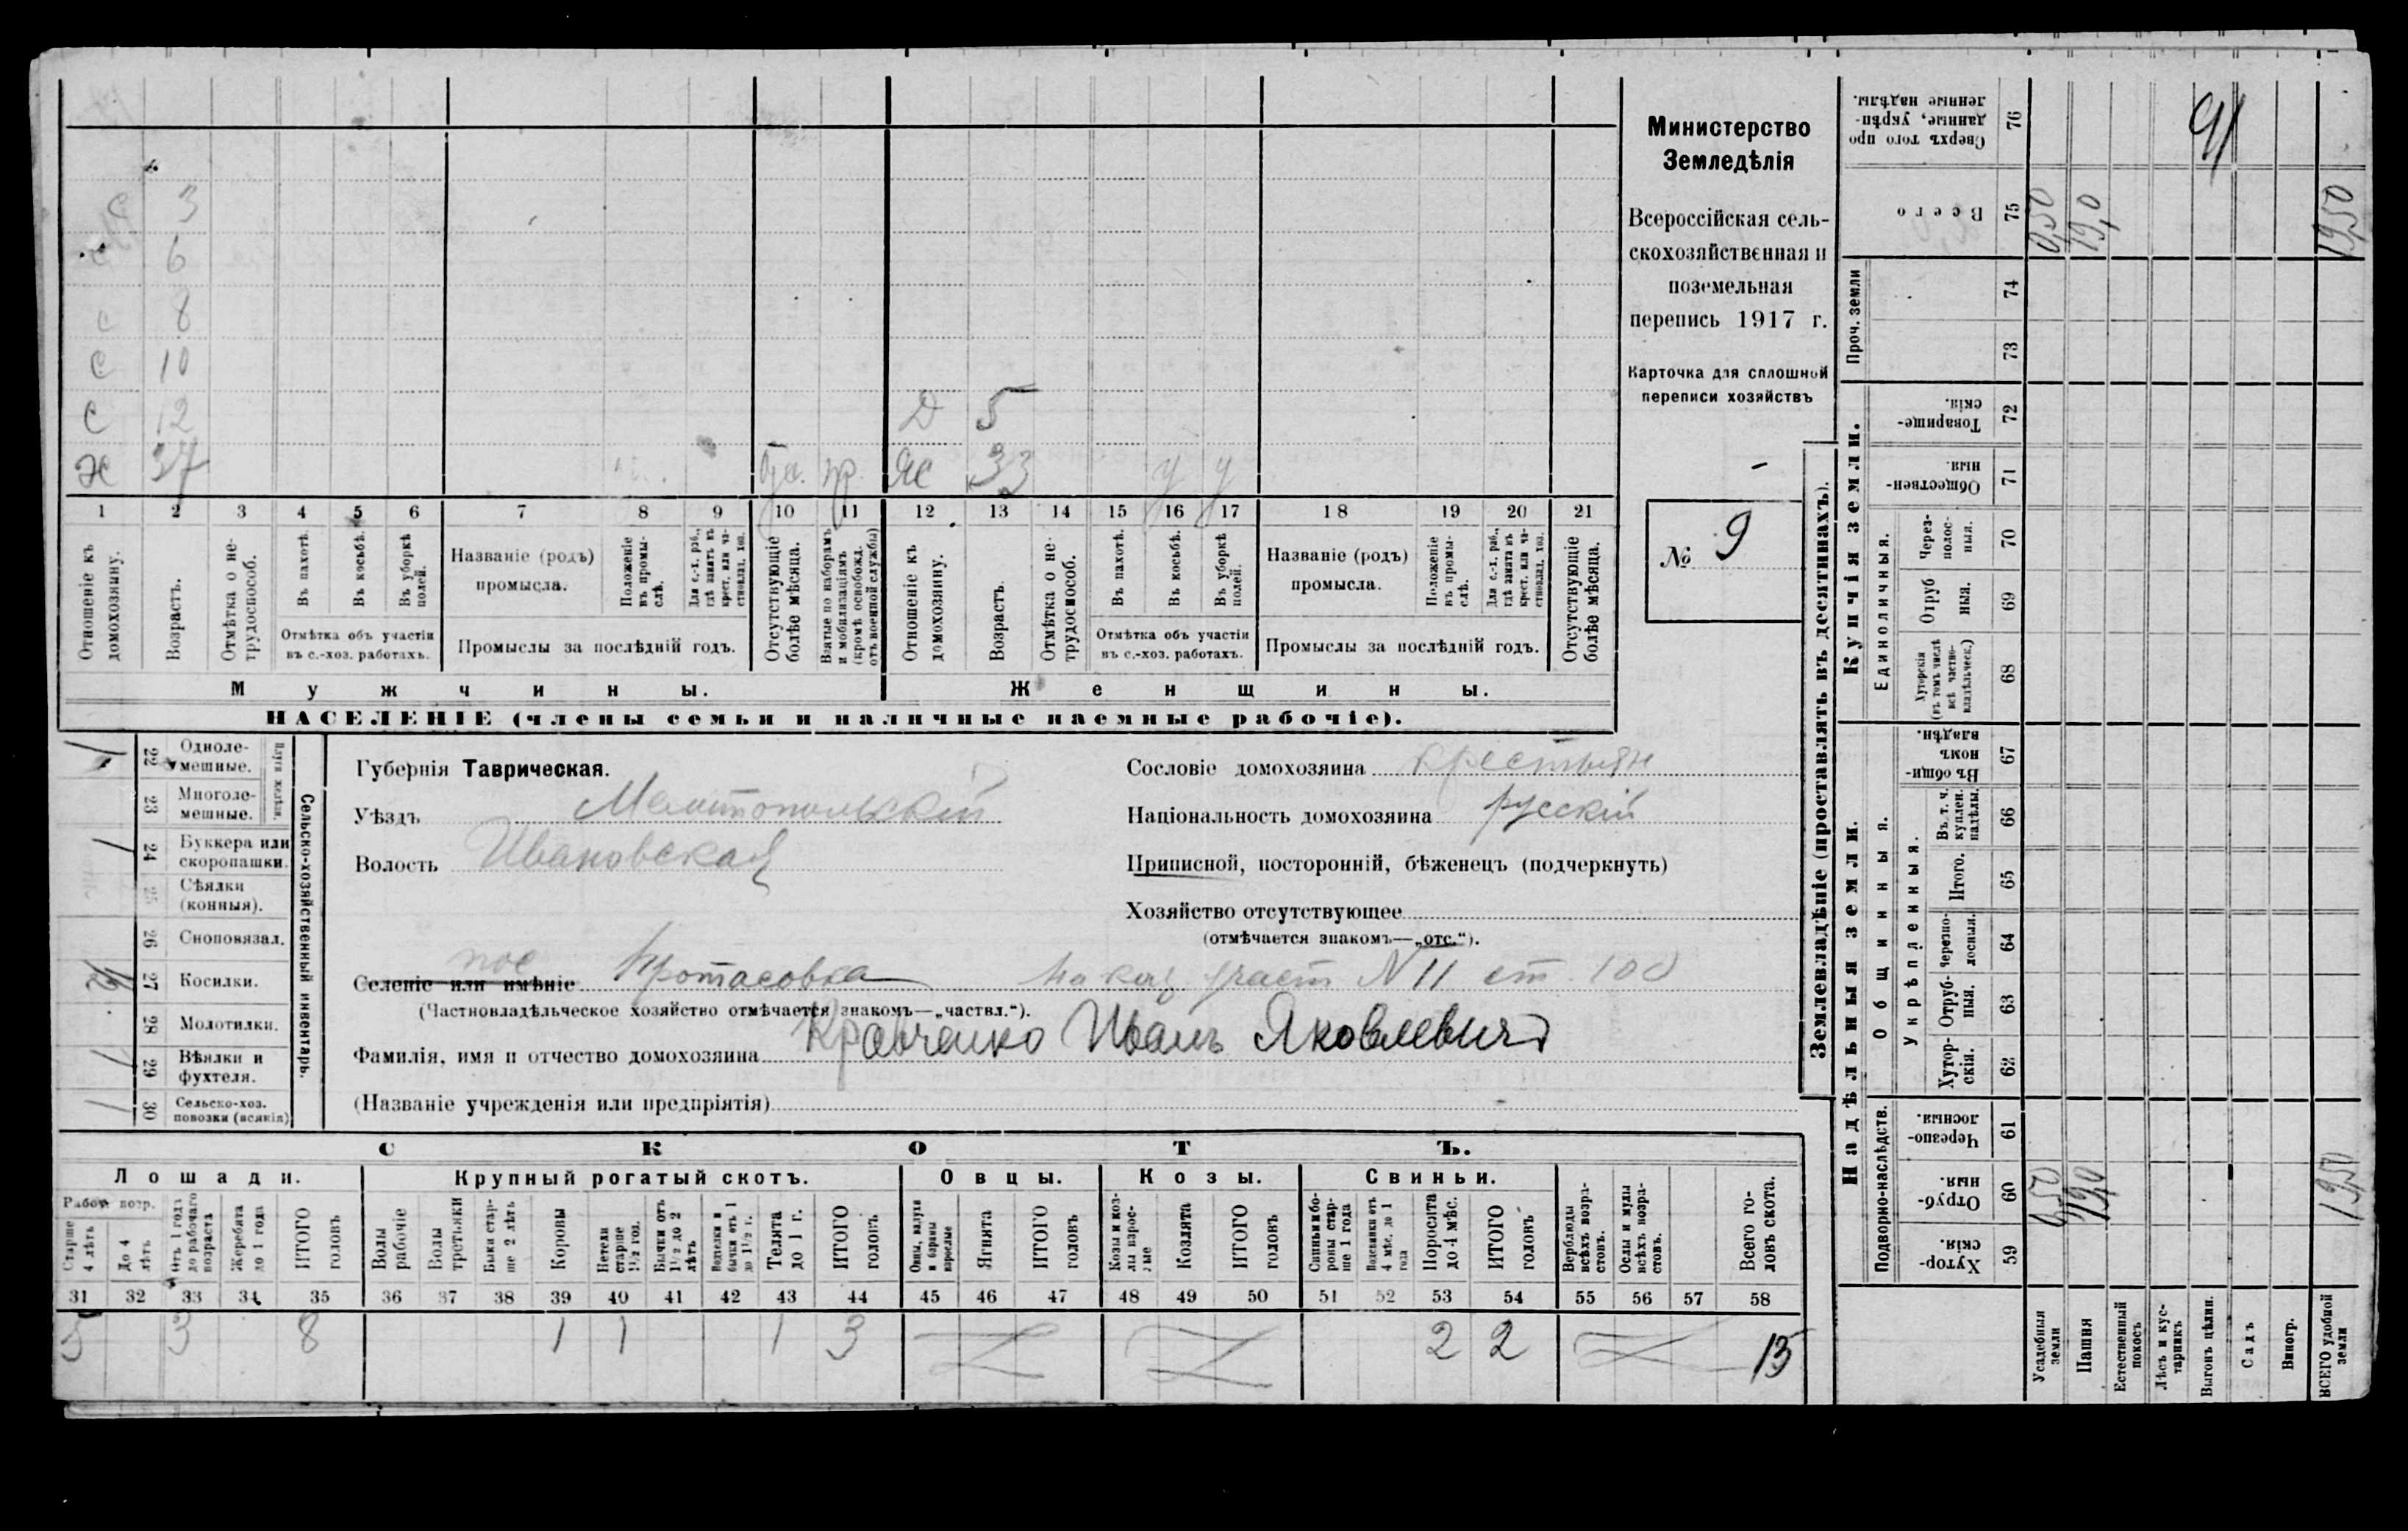 с 3
с 6
с 8
с 10
с 12 Д 5
Х 37 пр. Ж 33 у у
1 2 3 4 5 6 7 8 9 10 11 12 13 14 15 16 17 18 19 20 21
Отношеніе къ домохозяину.
Возрастъ.
Отмѣтка о нетрудоспособ.
Въ пахотѣ.
Въ косьбѣ.
Въ уборкѣ полей.
Отмѣтка объ участіи
въ с.-хоз. работахъ.
Названіе (родъ)
промысла.
Положеніе въ промы-слѣ.
Для с.-х. раб., гдѣ занятъ въ крест. или ча-стновлад. хоз.
Промыслы за послѣдній годъ.
Отсутствующіе болѣе мѣсяца.
Взятые по наборамъ и мобилизаціямъ (кромѣ освобожд. отъ военной службы)
Отношеніе къ домохозяину.
Возрастъ.
Отмѣтка о не-трудоспособ.
Въ пахотѣ.
Въ косьбѣ.
Въ уборкѣ полей.
Отмѣтка объ участіи
въ с.-хоз. работахъ.
Названіе (родъ)
промысла.
Положеніе въ промы-слѣ.
Для с.-х. раб., гдѣ занята въ крест. или ча-стновлад. хоз.
Промыслы за послѣдній годъ.
Отсутствующіе болѣе мѣсяца.
Мужчины. Женщины.
НАСЕЛЕНІЕ (члены семьи и наличные наемные рабочіе).
Министерство
Земледѣлія
Всероссійская сель-
скохозяйственная и
поземельная
перепись 1917 г.
Карточка для сплошной
переписи хозяйствъ
№ 9
22 Одноле-
мешные.
23 Многоле-
мешные.
Плуги желѣзн.
24 Буккера или
скоропашки.
25 Сѣялки
(конныя).
26 Сноповязал.
27 Косилки.
28 Молотилки.
29 Вѣялки и
фухтеля.
30 Сельско-хоз.
повозки (всякія)
Сельско-хозяйственный инвентарь.
Губернія Таврическая.
Уѣздъ Мелитопольскій
Волость Ивановская
пос
Селеніе или имѣніе Протасовка на каз участ N 11 ст. 100
(Частновладѣльческое хозяйство отмѣчается знакомъ—„частвл.“).
Фамилія, имя и отчество домохозяина Кравченко Иванъ Яковлевичъ
(Названіе учрежденія или предпріятія)
Сословіе домохозяина крестьян
Національность домохозяина русскій
Приписной, посторонній, бѣженецъ (подчеркнуть)
Хозяйство отсутствующее
(отмѣчается знакомъ—„отс.“).
СКОТЪ.
Лошади. Крупный рогатый скотъ. Овцы. Козы. Свиньи.
Рабоч. возр.
Старше 4 лѣтъ
До 4 лѣтъ
Отъ 1 года до рабочаго возраста
Жеребята до 1 года
ИТОГО головъ
Волы рабочіе
Волы третьяки
Быки стар-ше 2 лѣтъ
Коровы
Нетели старше 1½ год.
Бычки отъ 1½ до 2 лѣтъ
Подтелки и бычки отъ 1 до 1½ г.
Телята до 1 г.
ИТОГО головъ
Овцы, валухи и бараны взрослые
Ягнята
ИТОГО головъ
Козы и коз-лы взрос-лые
Козлята
ИТОГО головъ
Свиньи и бо-ровы стар-ше 1 года
Подсвинки отъ 4 мѣс. до 1 года
Поросята до 4 мѣс.
ИТОГО головъ
Верблюды всѣхъ возра-стовъ.
Ослы и мулы всѣхъ возра-стовъ.
Всего го-ловъ скота.
31 32 33 34 35 36 37 38 39 40 41 42 43 44 45 46 47 48 49 50 51 52 53 54 55 56 57 58
5 3 8 1 1 1 3 2 2 13
Землевладѣніе (проставлять въ десятинахъ).
Сверхъ того про-данные, укрѣп-ленные надѣлы. 76
Всего 75 0,50 19,0 19,50
Проч. земли 74 73
Купчія земли.
Товарище-скія. 72
Обществен-ныя. 71
Единоличныя.
Через-полос-ныя. 70
Отруб-ныя. 69
Хуторскія (въ томъ числѣ всѣ частно-владѣльческ.) 68
Надѣльныя земли.
Общинныя.
Въ общин-номъ владѣн. 67
Укрѣпленныя.
Въ т. ч. куплен. надѣлы. 66
Итого. 65
Черезпо-лосныя. 64
Отруб-ныя. 63
Хутор-скія. 62
Подворно-наслѣдств.
Черезпо-лосныя. 61
Отруб-ныя. 60 0,50 19,0 19,50
Хутор-скія. 59
Усадебныя земли
Пашня
Естественный покосъ
Лѣсъ и кус-тарникъ
Выгонъ цѣлин.
Садъ
Виногр.
ВСЕГО удобной земли